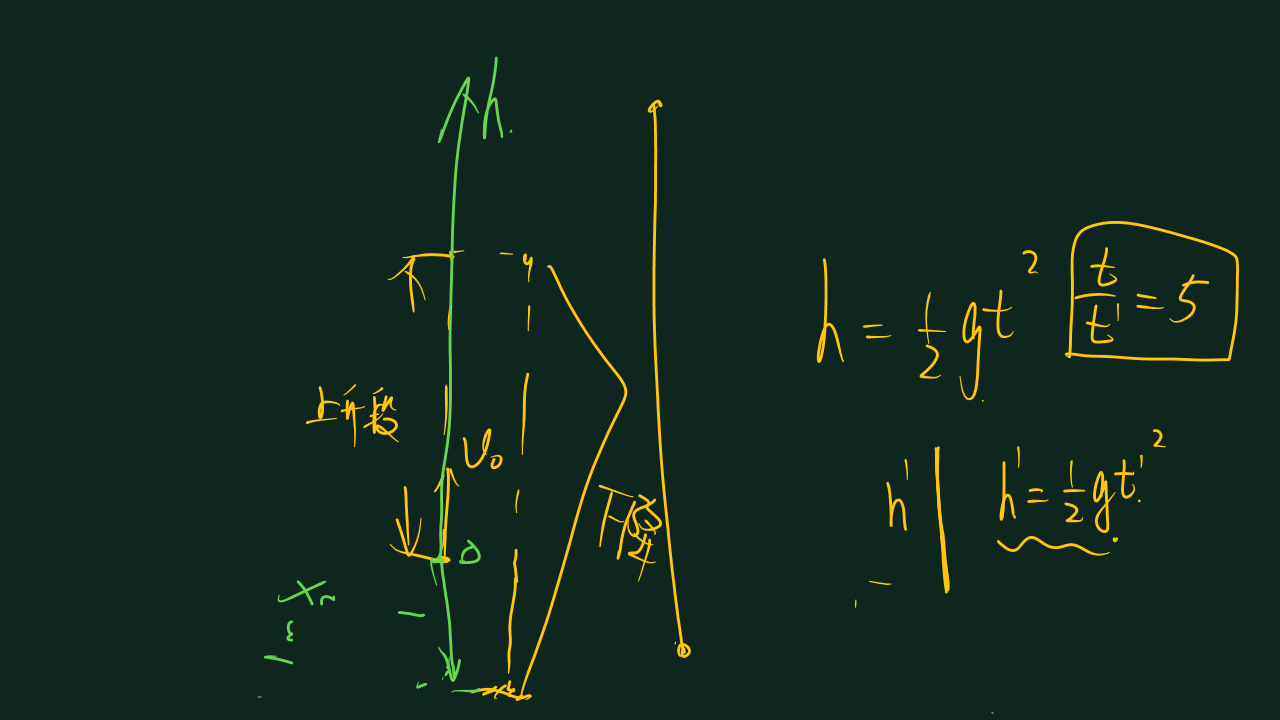 h
上升段
v₀
0
下降
h = ½gt²
t/t' = 5
h'
h' = ½gt'²